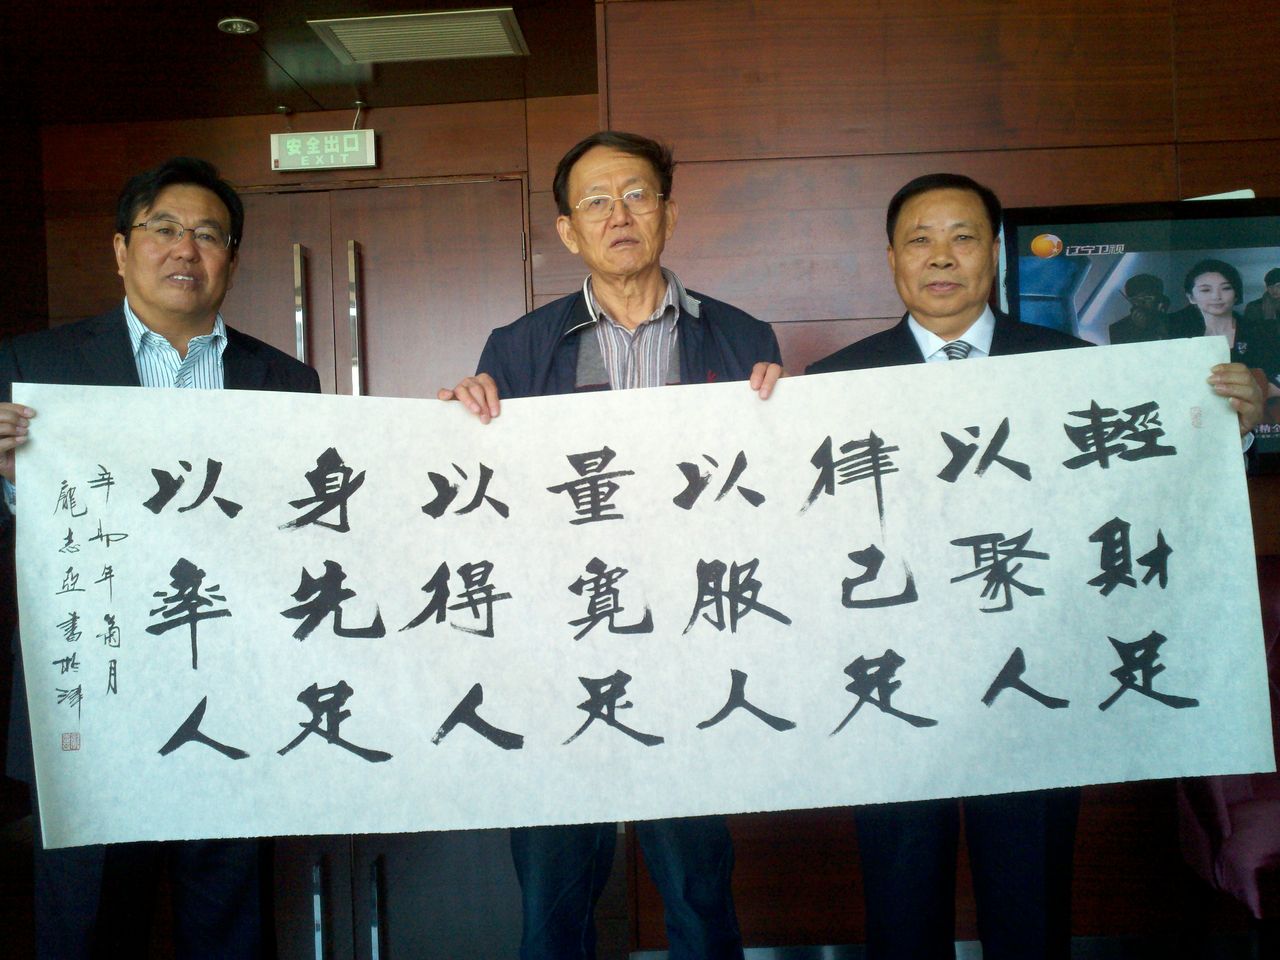 安全出口
EXIT
辽宁卫视
輕財足
以聚人
律己足
以服人
量寬足
以得人
身先足
以率人
辛卯年菊月
龐志亞書於津